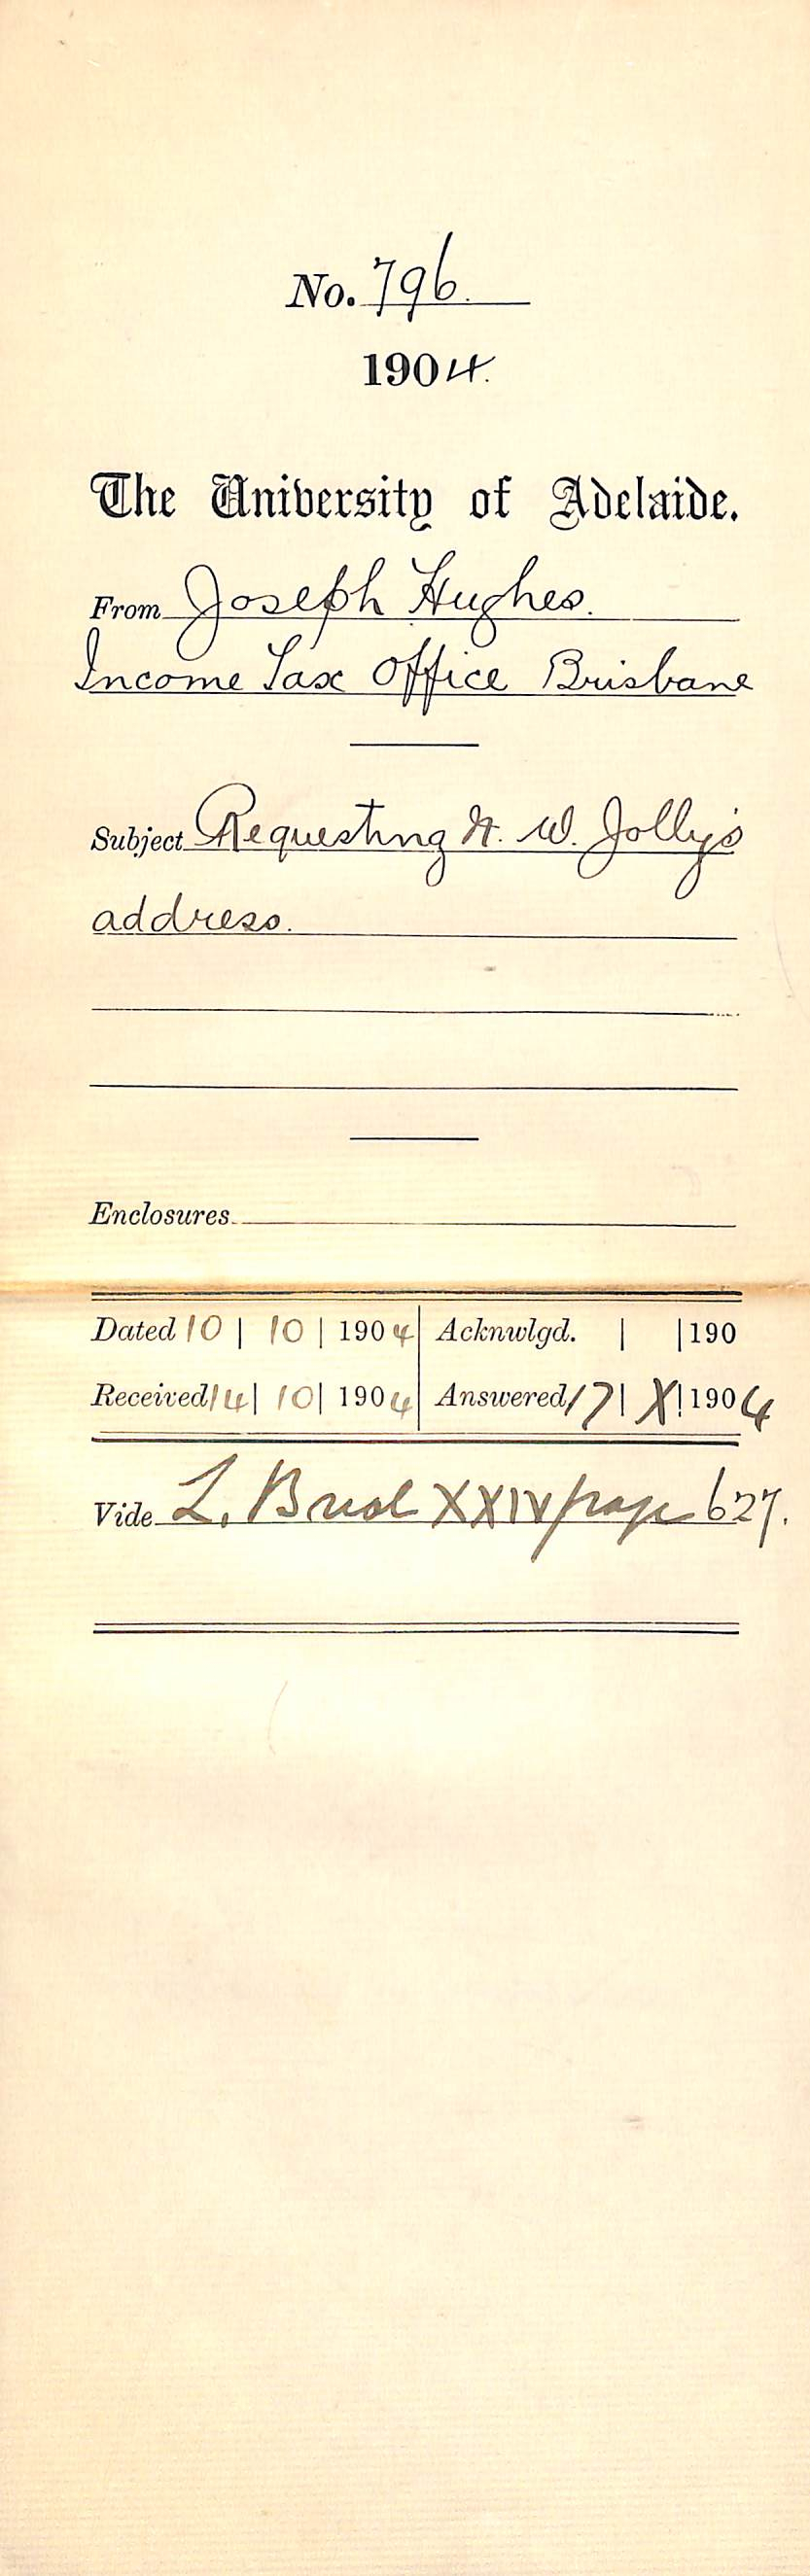 No. 796.
1904.
The University of Adelaide.
From Joseph Hughes.
Income Tax Office Brisbane
Subject Requesting N. W. Jolly's
address.
Enclosures
Dated 10 | 10 | 1904 Acknwlgd. | | 190
Received 14 | 10 | 1904 Answered 17 | X | 1904
Vide L. XXIV page 627.